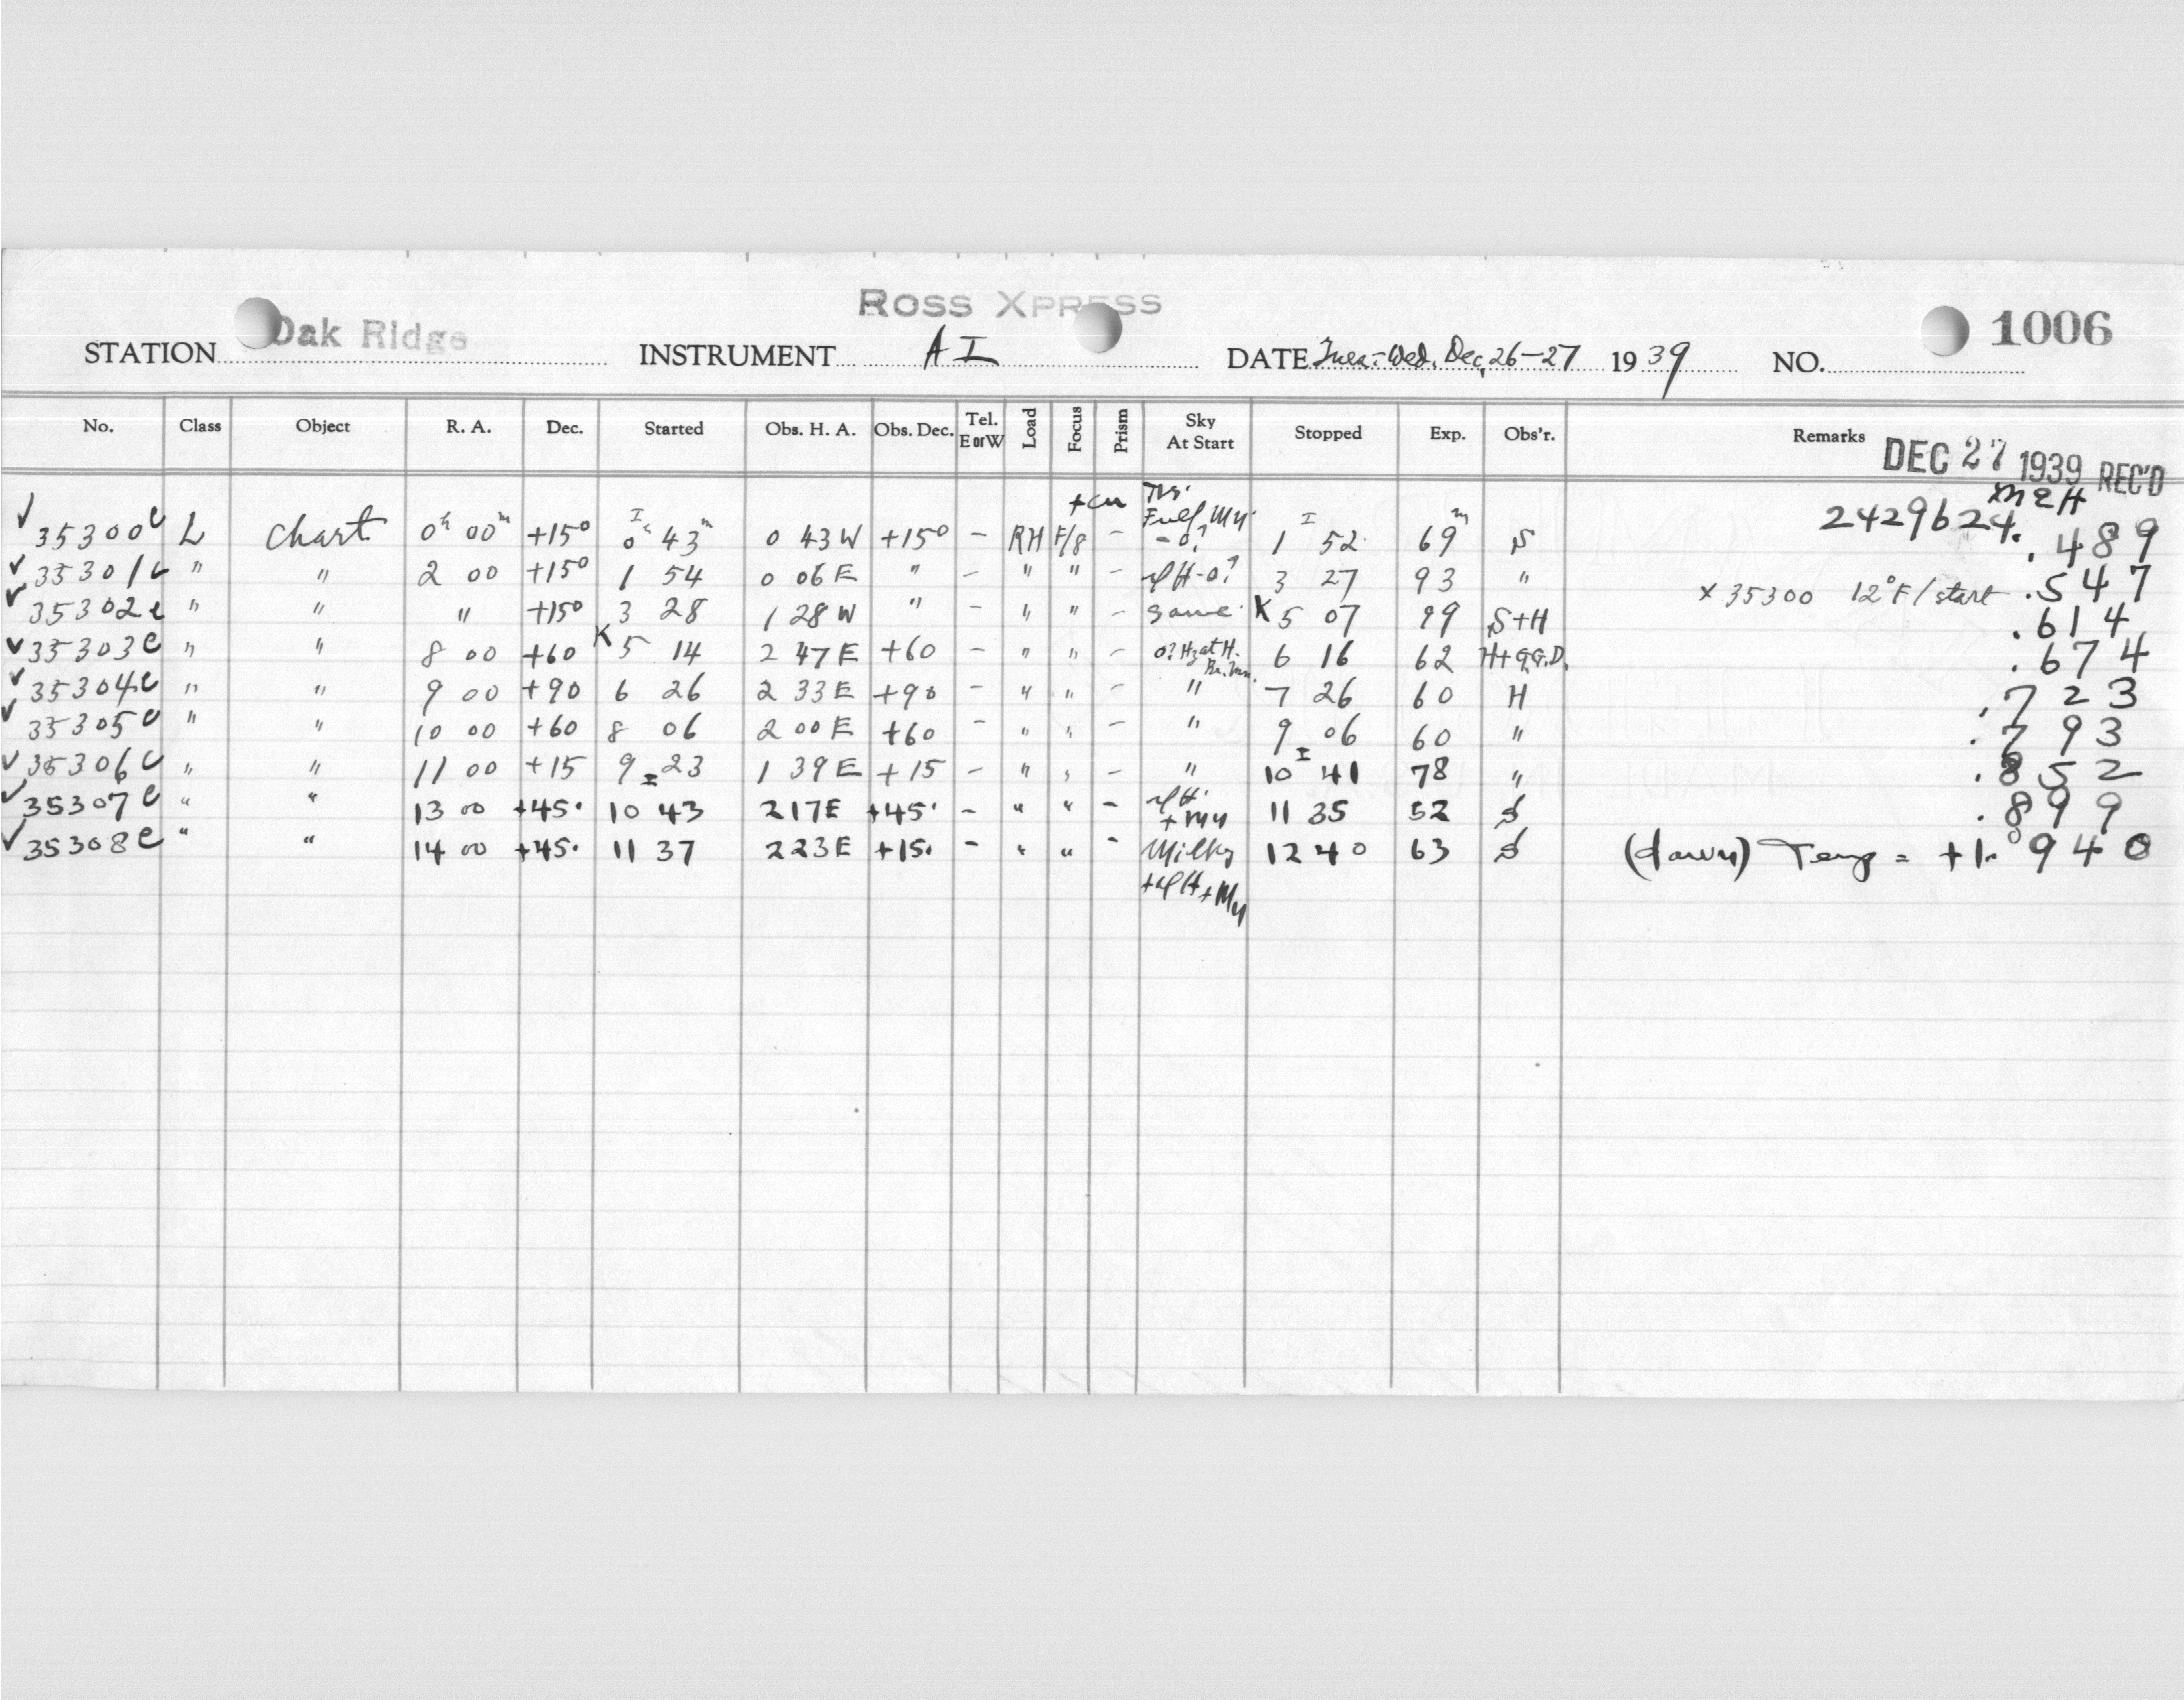 ROSS XPRESS
Oak Ridge 1006
STATION INSTRUMENT AI DATE Tues.-Wed. Dec. 26-27 1939 NO.
No. Class Object R. A. Dec. Started Obs. H. A. Obs. Dec. Tel. E or W Load Focus Prism Sky At Start Stopped Exp. Obs'r. Remarks
DEC 27 1939 REC'D
+cm MEH
Full Mn. 2429624.
35300 L Chart 0h 00m +15° I 0h 43m 0 43W +15° - RH F/8 - -0? I 1 52 69m S .489
35301 " " 2 00 +15° 1 54 0 06E " - " " - 3 27 93 " .547
x 35300 12°F/start
35302 " " " +15° 3 28 1 28W " - " " - same K 5 07 99 S+H .614
35303 " " 8 00 +60 K 5 14 2 47E +60 - " " - 0? Hz at H. 6 16 62 H+G.G.D. .674
35304 " " 9 00 +90 6 26 2 33E +90 - " " - " 7 26 60 H .723
35305 " " 10 00 +60 8 06 2 00E +60 - " " - " 9 06 60 " .793
35306 " " 11 00 +15 9 23 1 39E +15 - " " - " 10 41 78 " .852
35307 " " 13 00 +45° I 10 43 2 17E +45° - " " - I 11 35 52 S .899
+ Mn
35308 " " 14 00 +45° 11 37 2 23E +15° - " " - Milky 12 40 63 S (dawn) Temp = +1.° .940
+ Mn